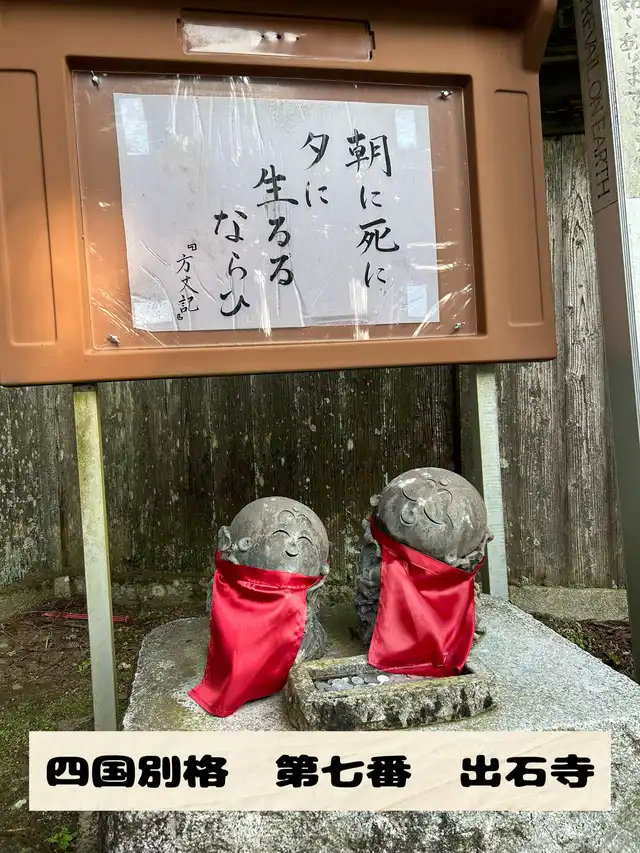 朝に死に
夕に
生るる
ならひ
方丈記
PREVAIL ON EARTH
四国別格 第七番 出石寺